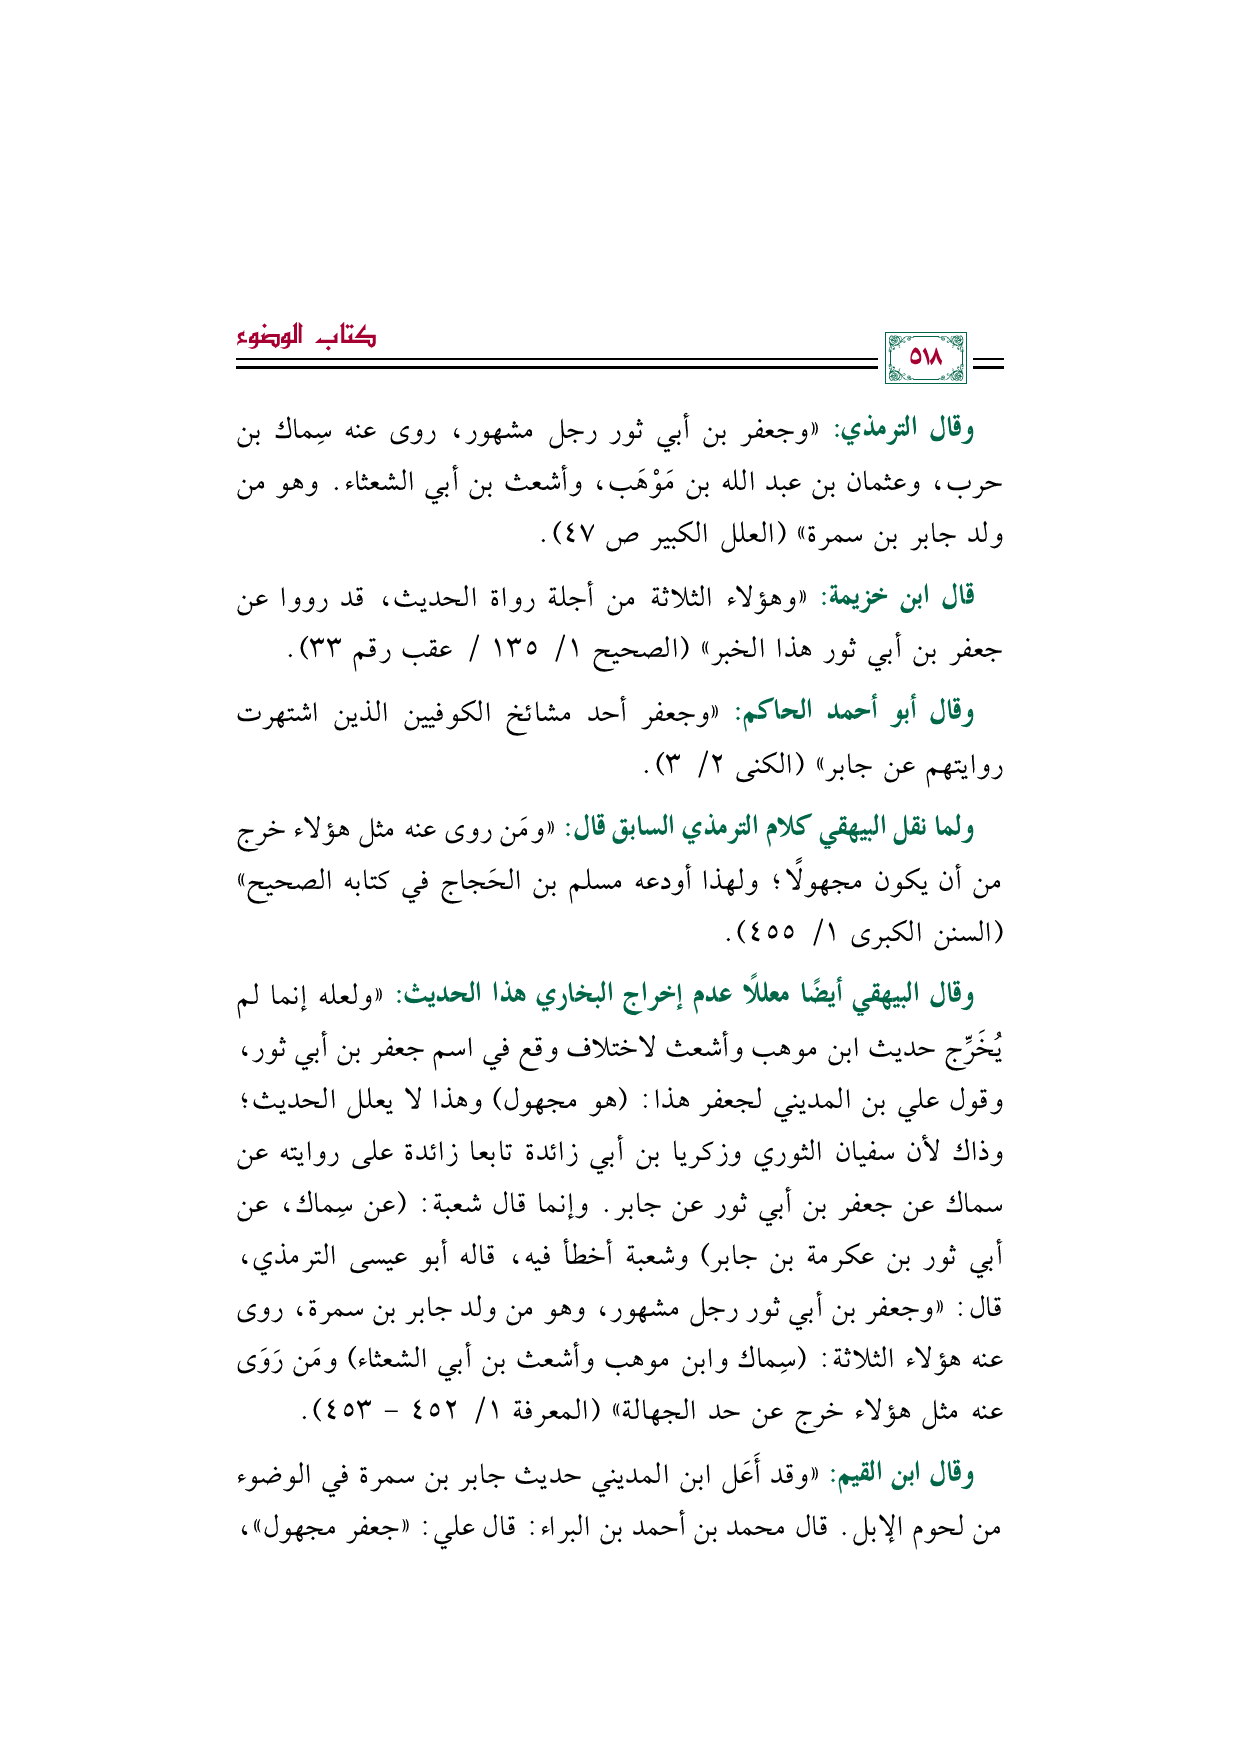 كتاب الوضوء
٥١٨
وقال الترمذي: «وجعفر بن أبي ثور رجل مشهور، روى عنه سِماك بن
حرب، وعثمان بن عبد الله بن مَوْهَب، وأشعث بن أبي الشعثاء. وهو من
ولد جابر بن سمرة» (العلل الكبير ص ٤٧).
قال ابن خزيمة: «وهؤلاء الثلاثة من أجلة رواة الحديث، قد رووا عن
جعفر بن أبي ثور هذا الخبر» (الصحيح ١/ ١٣٥ / عقب رقم ٣٣).
وقال أبو أحمد الحاكم: «وجعفر أحد مشائخ الكوفيين الذين اشتهرت
روايتهم عن جابر» (الكنى ٢/ ٣).
ولما نقل البيهقي كلام الترمذي السابق قال: «ومَن روى عنه مثل هؤلاء خرج
من أن يكون مجهولًا؛ ولهذا أودعه مسلم بن الحَجاج في كتابه الصحيح»
(السنن الكبرى ١/ ٤٥٥).
وقال البيهقي أيضًا معللًا عدم إخراج البخاري هذا الحديث: «ولعله إنما لم
يُخَرِّج حديث ابن موهب وأشعث لاختلاف وقع في اسم جعفر بن أبي ثور،
وقول علي بن المديني لجعفر هذا: (هو مجهول) وهذا لا يعلل الحديث؛
وذاك لأن سفيان الثوري وزكريا بن أبي زائدة تابعا زائدة على روايته عن
سماك عن جعفر بن أبي ثور عن جابر. وإنما قال شعبة: (عن سِماك، عن
أبي ثور بن عكرمة بن جابر) وشعبة أخطأ فيه، قاله أبو عيسى الترمذي،
قال: «وجعفر بن أبي ثور رجل مشهور، وهو من ولد جابر بن سمرة، روى
عنه هؤلاء الثلاثة: (سِماك وابن موهب وأشعث بن أبي الشعثاء) ومَن رَوَى
عنه مثل هؤلاء خرج عن حد الجهالة» (المعرفة ١/ ٤٥٢ – ٤٥٣).
وقال ابن القيم: «وقد أَعَل ابن المديني حديث جابر بن سمرة في الوضوء
من لحوم الإبل. قال محمد بن أحمد بن البراء: قال علي: «جعفر مجهول»،